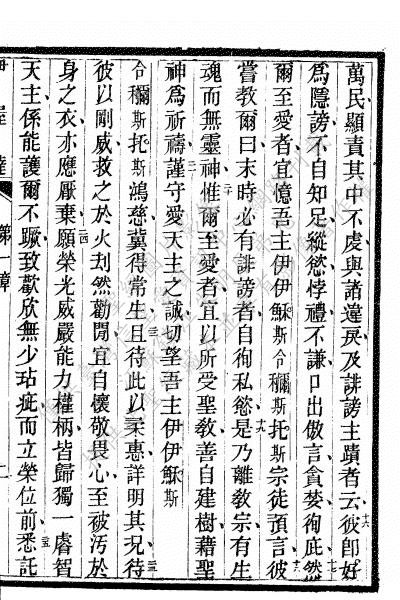 萬民顯責其中不虔與諸違戾及誹謗主蹟者云十六彼卽好
為隱謗不自知足縱慾悖禮不謙口出傲言貪婪徇庇十七然
爾至愛者宜憶吾主伊伊穌斯合穪斯托斯宗徒預言十八彼
嘗教爾曰末時必有誹謗者自徇私慾十九是乃離教宗有生
魂而無靈神二十惟爾至愛者宜以所受聖教善自建樹藉聖
神為祈禱二一謹守愛天主之誠切望吾主伊伊穌斯
合穪斯托斯鴻慈冀得常生二二且待此以柔惠詳明其況二三待
彼以剛威救之於火刼然勸閒宜自懷敬畏心至被汚於
身之衣亦應厭棄二四願榮光威嚴能力權柄皆歸獨一睿智
天主係能護爾不蹶致歡欣無少玷疵而立榮位前二五悉託
第一章
二